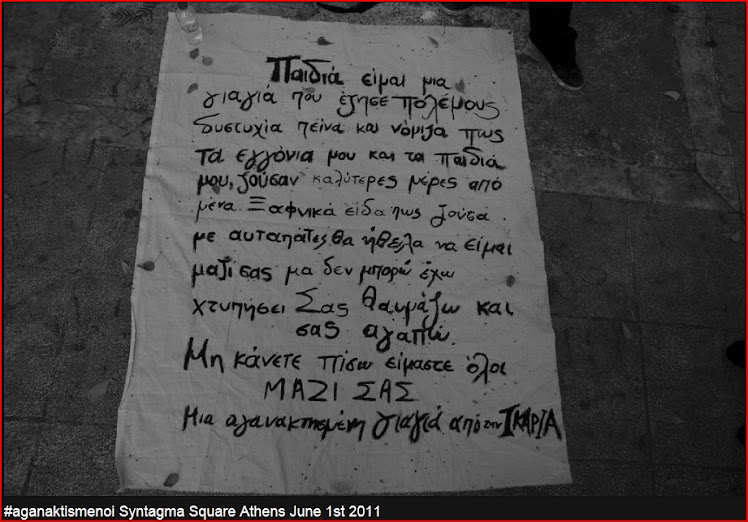 Παιδιά είμαι μια
γιαγιά που έζησε πολέμους
δυστυχία πείνα και νόμιζα πως
τα εγγόνια μου και τα παιδιά
μου, ζούσαν καλύτερες μέρες από
μένα. Ξαφνικά είδα πως ζούσα
με αυταπάτες, θα ήθελα να είμαι
μαζί σας μα δεν μπορώ έχω
χτυπήσει Σας θαυμάζω και
σας αγαπώ.
Μη κάνετε πίσω είμαστε όλοι
ΜΑΖΙ ΣΑΣ
Μια αγανακτισμένη γιαγιά από την ΙΚΑΡΙΑ
#aganaktismenoI Syntagma Square Athens June 1st 2011